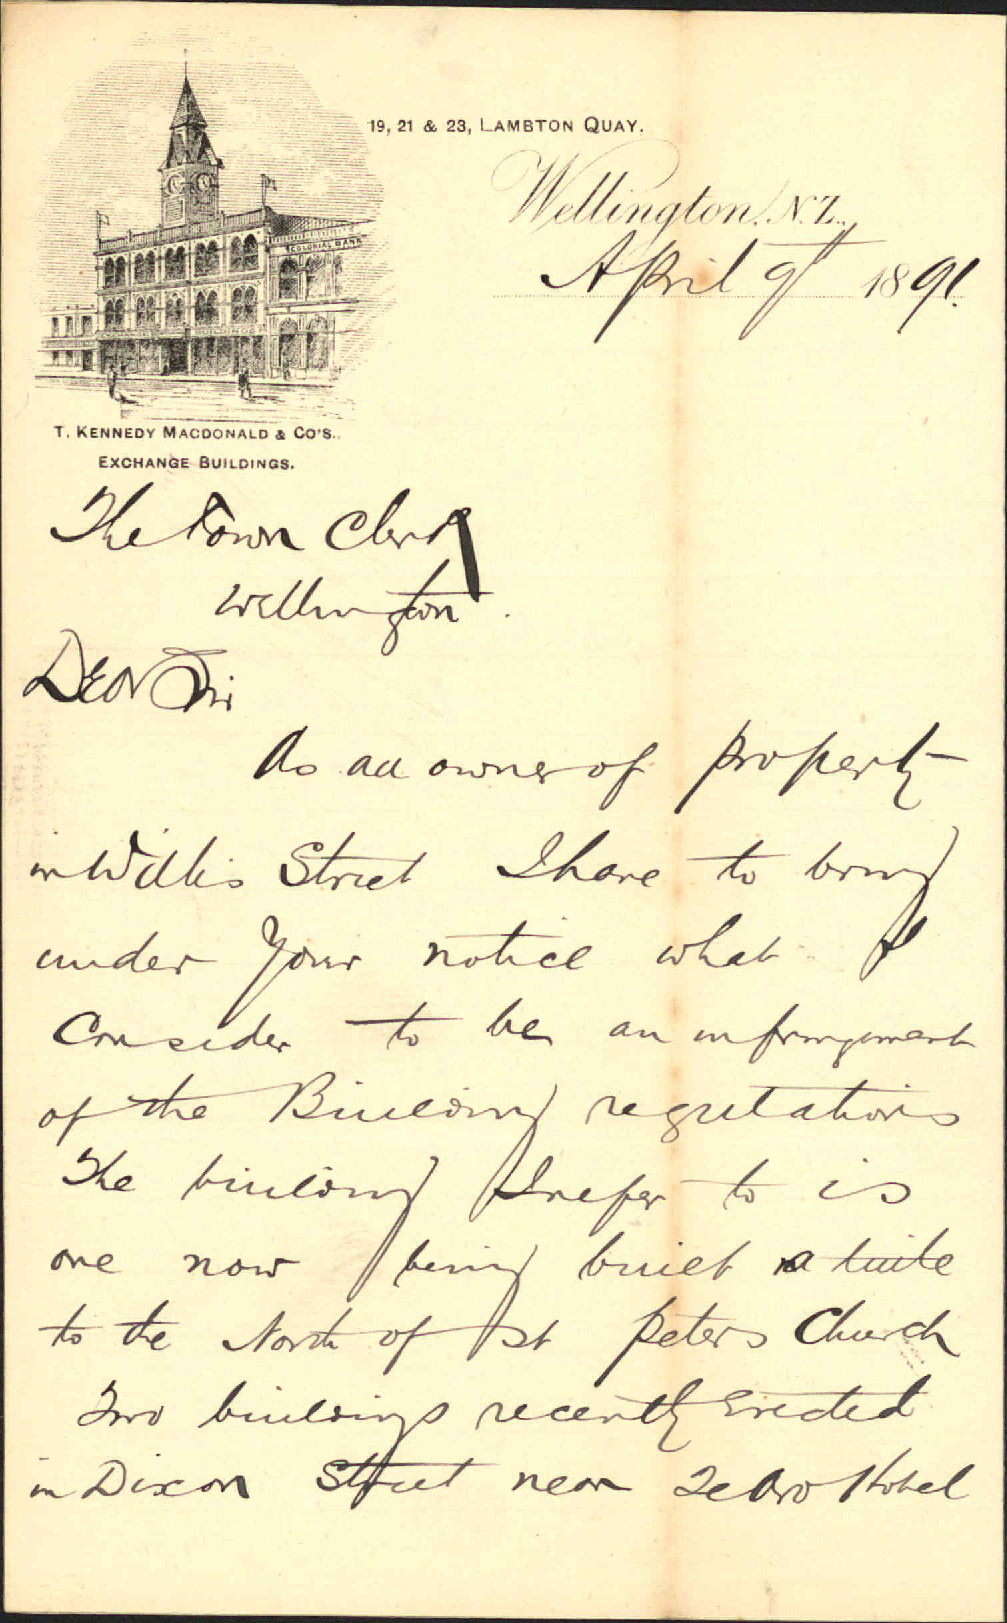 19, 21 & 23, LAMBTON QUAY.
Wellington, N.Z.,
April 9th 1891.
COLONIAL BANK
T. KENNEDY MACDONALD & CO'S.,
EXCHANGE BUILDINGS.
The Town Clerk
Wellington.
Dear Sir
As an owner of property
in Willis Street I have to bring
under your notice what I
Consider to be an infringement
of the Building regulations
The building I refer to is
one now being built a little
to the North of St Peters Church
Two buildings recently Erected
in Dixon Street near Te Aro Hotel